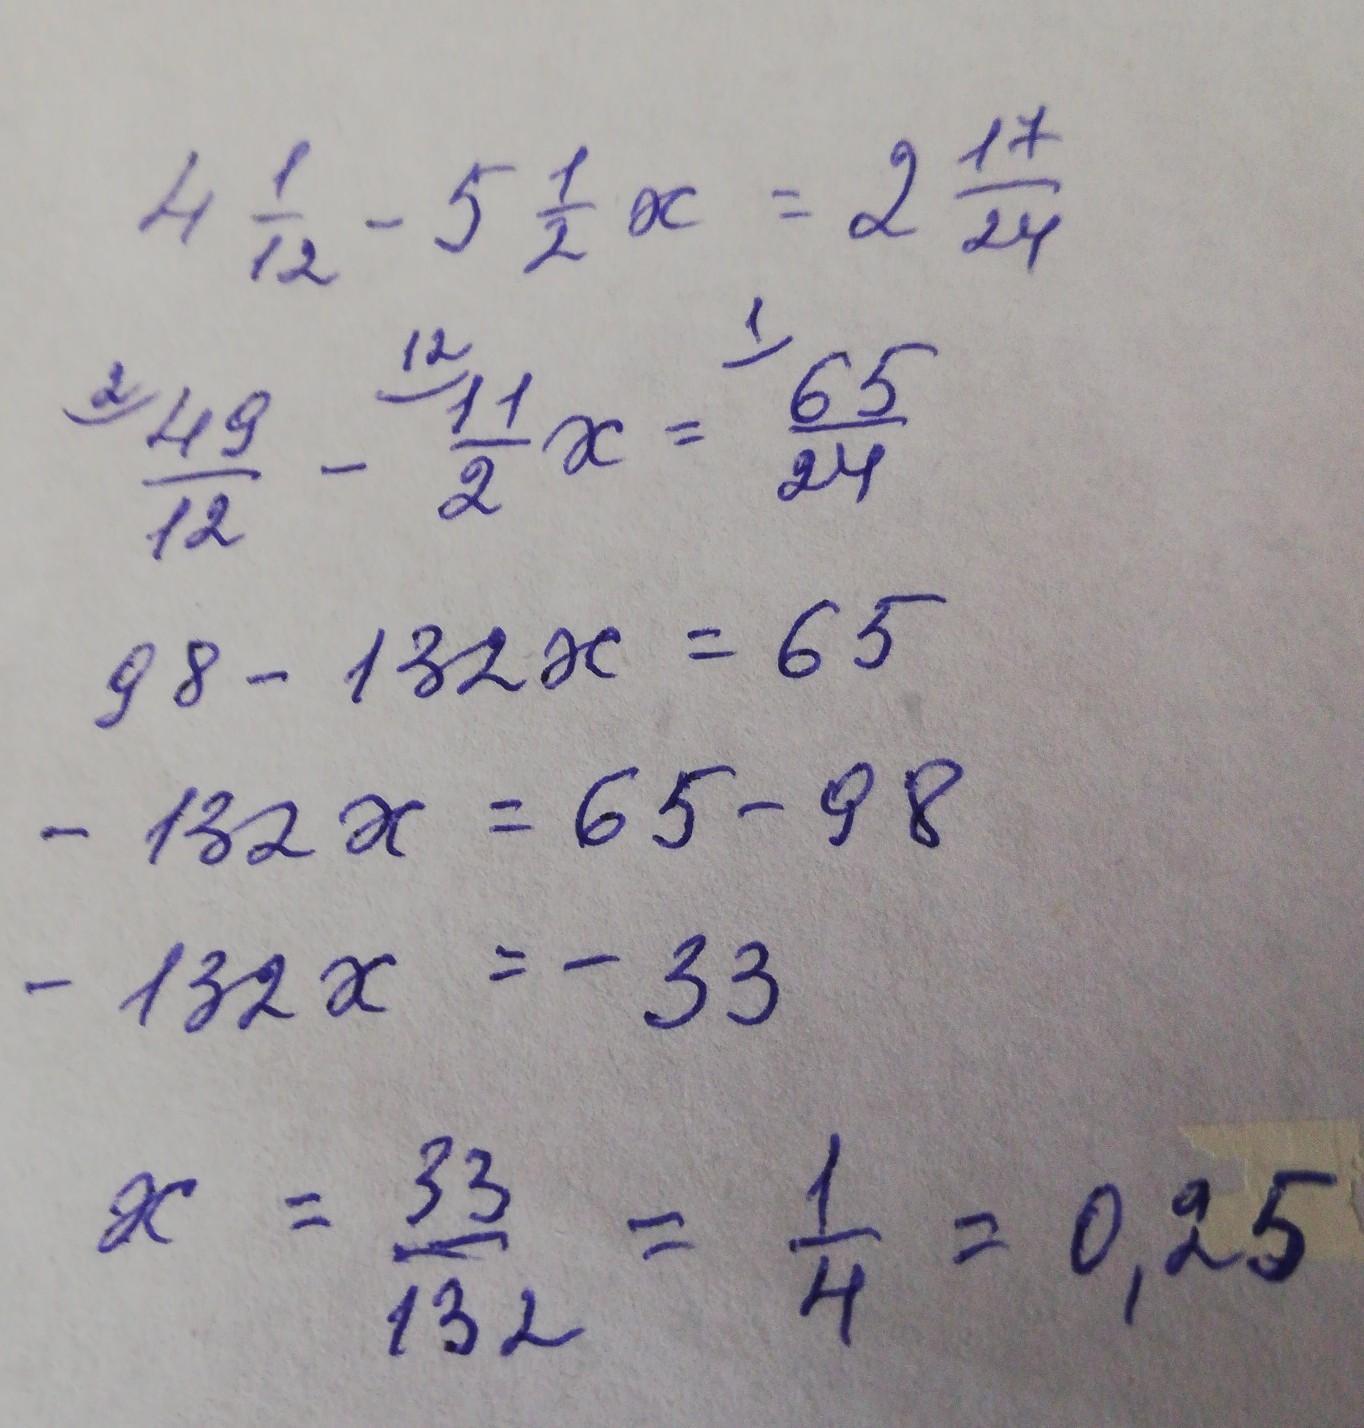 4 1/12 - 5 1/2 x = 2 17/24
2 49/12 - 12 11/2 x = 1 65/24
98 - 132x = 65
- 132x = 65 - 98
- 132x = - 33
x = 33/132 = 1/4 = 0,25